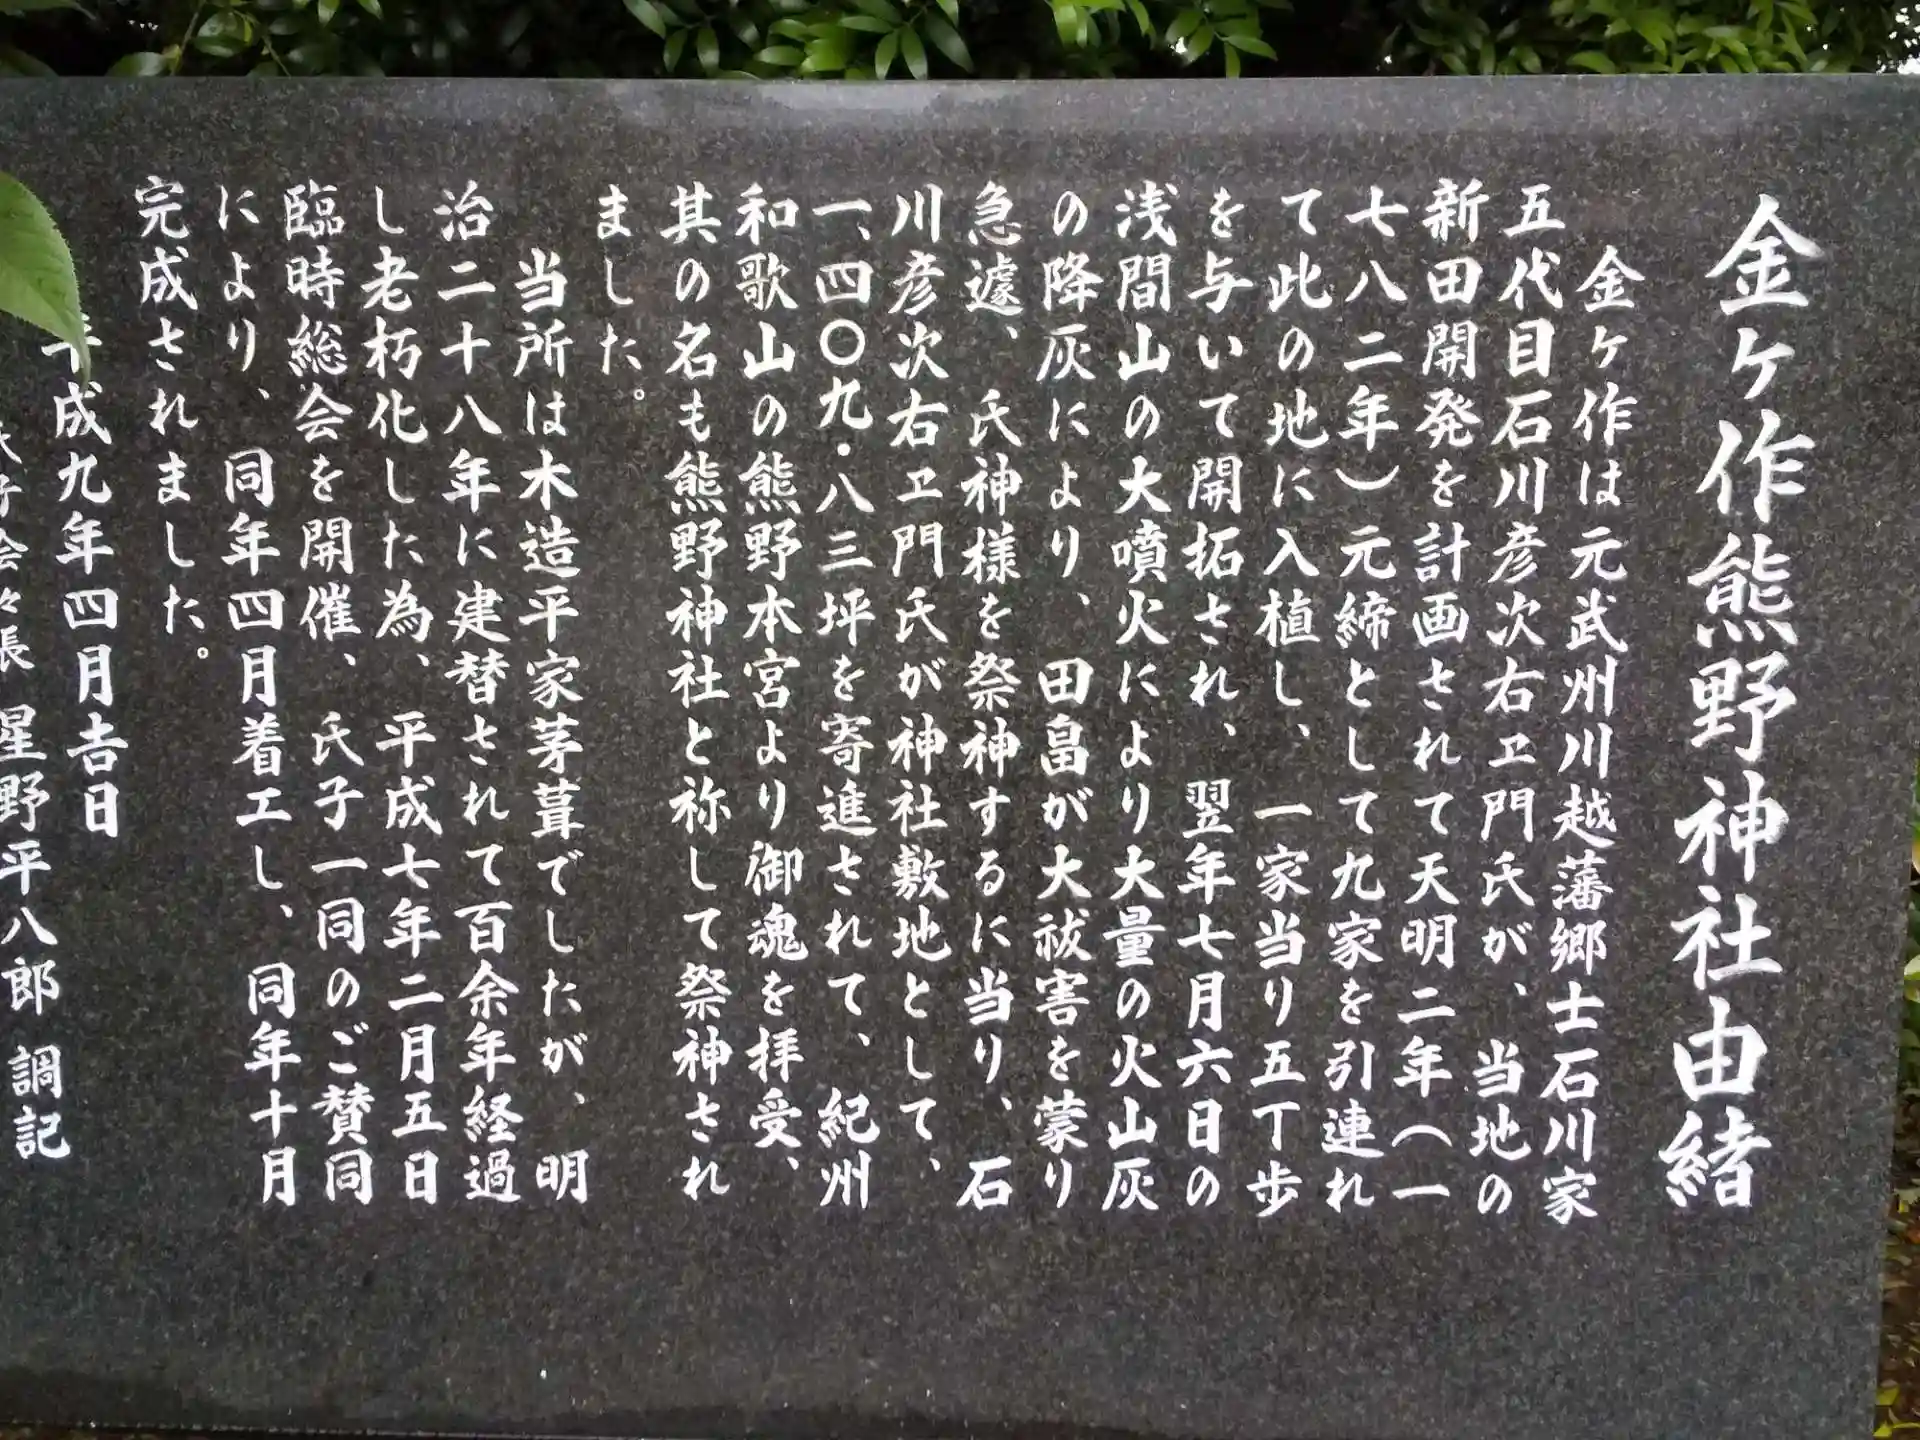 金ヶ作熊野神社由緒
金ヶ作は元武州川越藩郷士石川家
五代目石川彦次右ヱ門氏が、当地の
新田開発を計画されて天明二年(一
七八二年)元締として九家を引連れ
て此の地に入植し、一家当り五丁歩
を与いて開拓され、翌年七月六日の
浅間山の大噴火により大量の火山灰
の降灰により、田畠が大祓害を蒙り
急遽、氏神様を祭神するに当り、石
川彦次右ヱ門氏が神社敷地として、
一、四〇九・八三坪を寄進されて、紀州
和歌山の熊野本宮より御魂を拝受、
其の名も熊野神社と祢して祭神され
ました。
当所は木造平家茅葺でしたが、明
治二十八年に建替されて百余年経過
し老朽化した為、平成七年二月五日
臨時総会を開催、氏子一同のご賛同
により、同年四月着工し、同年十月
完成されました。
平成九年四月吉日
会々長 星野平八郎 調記